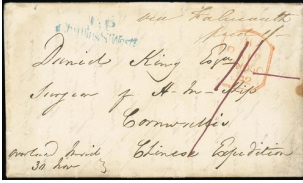 via Falmouth
Daniel King Esqr
Surgeon of H.M. Ship
Cornwallis
Chinese Expedition
overland mail
30 Nov